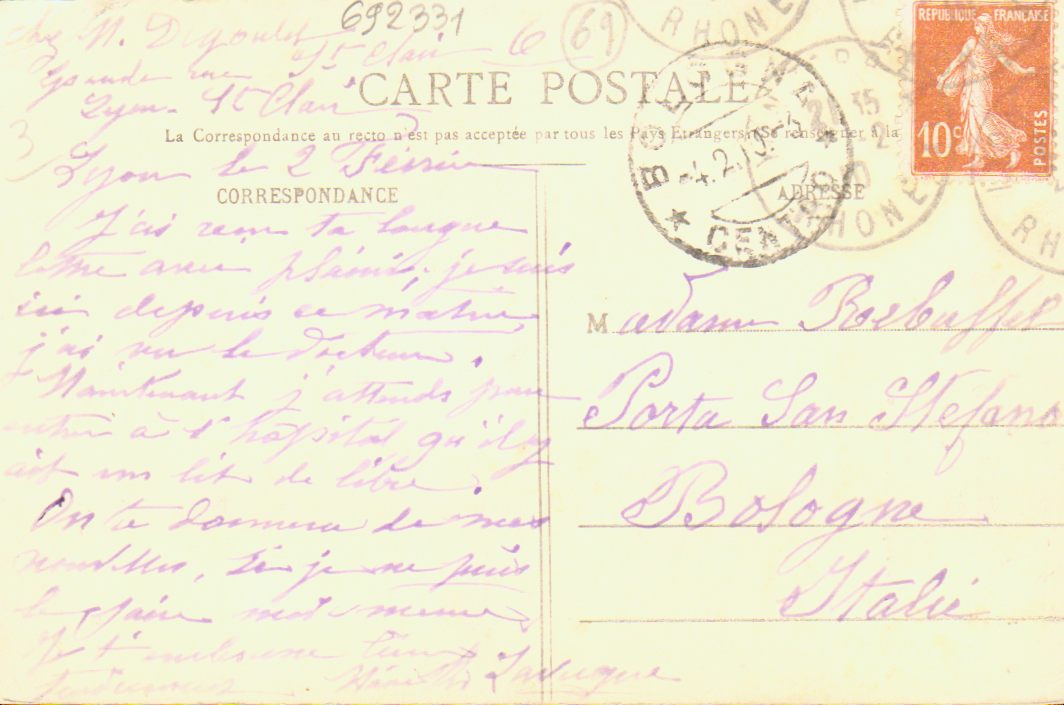 692331
69
chez M. Digoulet
Grande rue St Clair 6
Lyon - St Clair
3
CARTE POSTALE
La Correspondance au recto n'est pas acceptée par tous les Pays Etrangers (Se renseigner à la
Lyon le 2 Février
CORRESPONDANCE
ADRESSE
J'ai reçu ta longue
lettre avec plaisir, je suis
ici depuis ce matin,
j'ai vu le docteur.
Maintenant j'attends pour
entrer à l'hôpital qu'il y
ait un lit de libre.
On te donnera de mes
nouvelles, si je ne puis
le faire moi-même
Je t'embrasse bien
tendrement
Madame Rebuffet
Porta San Stefano
Bologne
Italie
REPUBLIQUE FRANÇAISE
10c
POSTES
BOLOGNA
CENTRO
4.2.10
RHONE
RHONE
RH